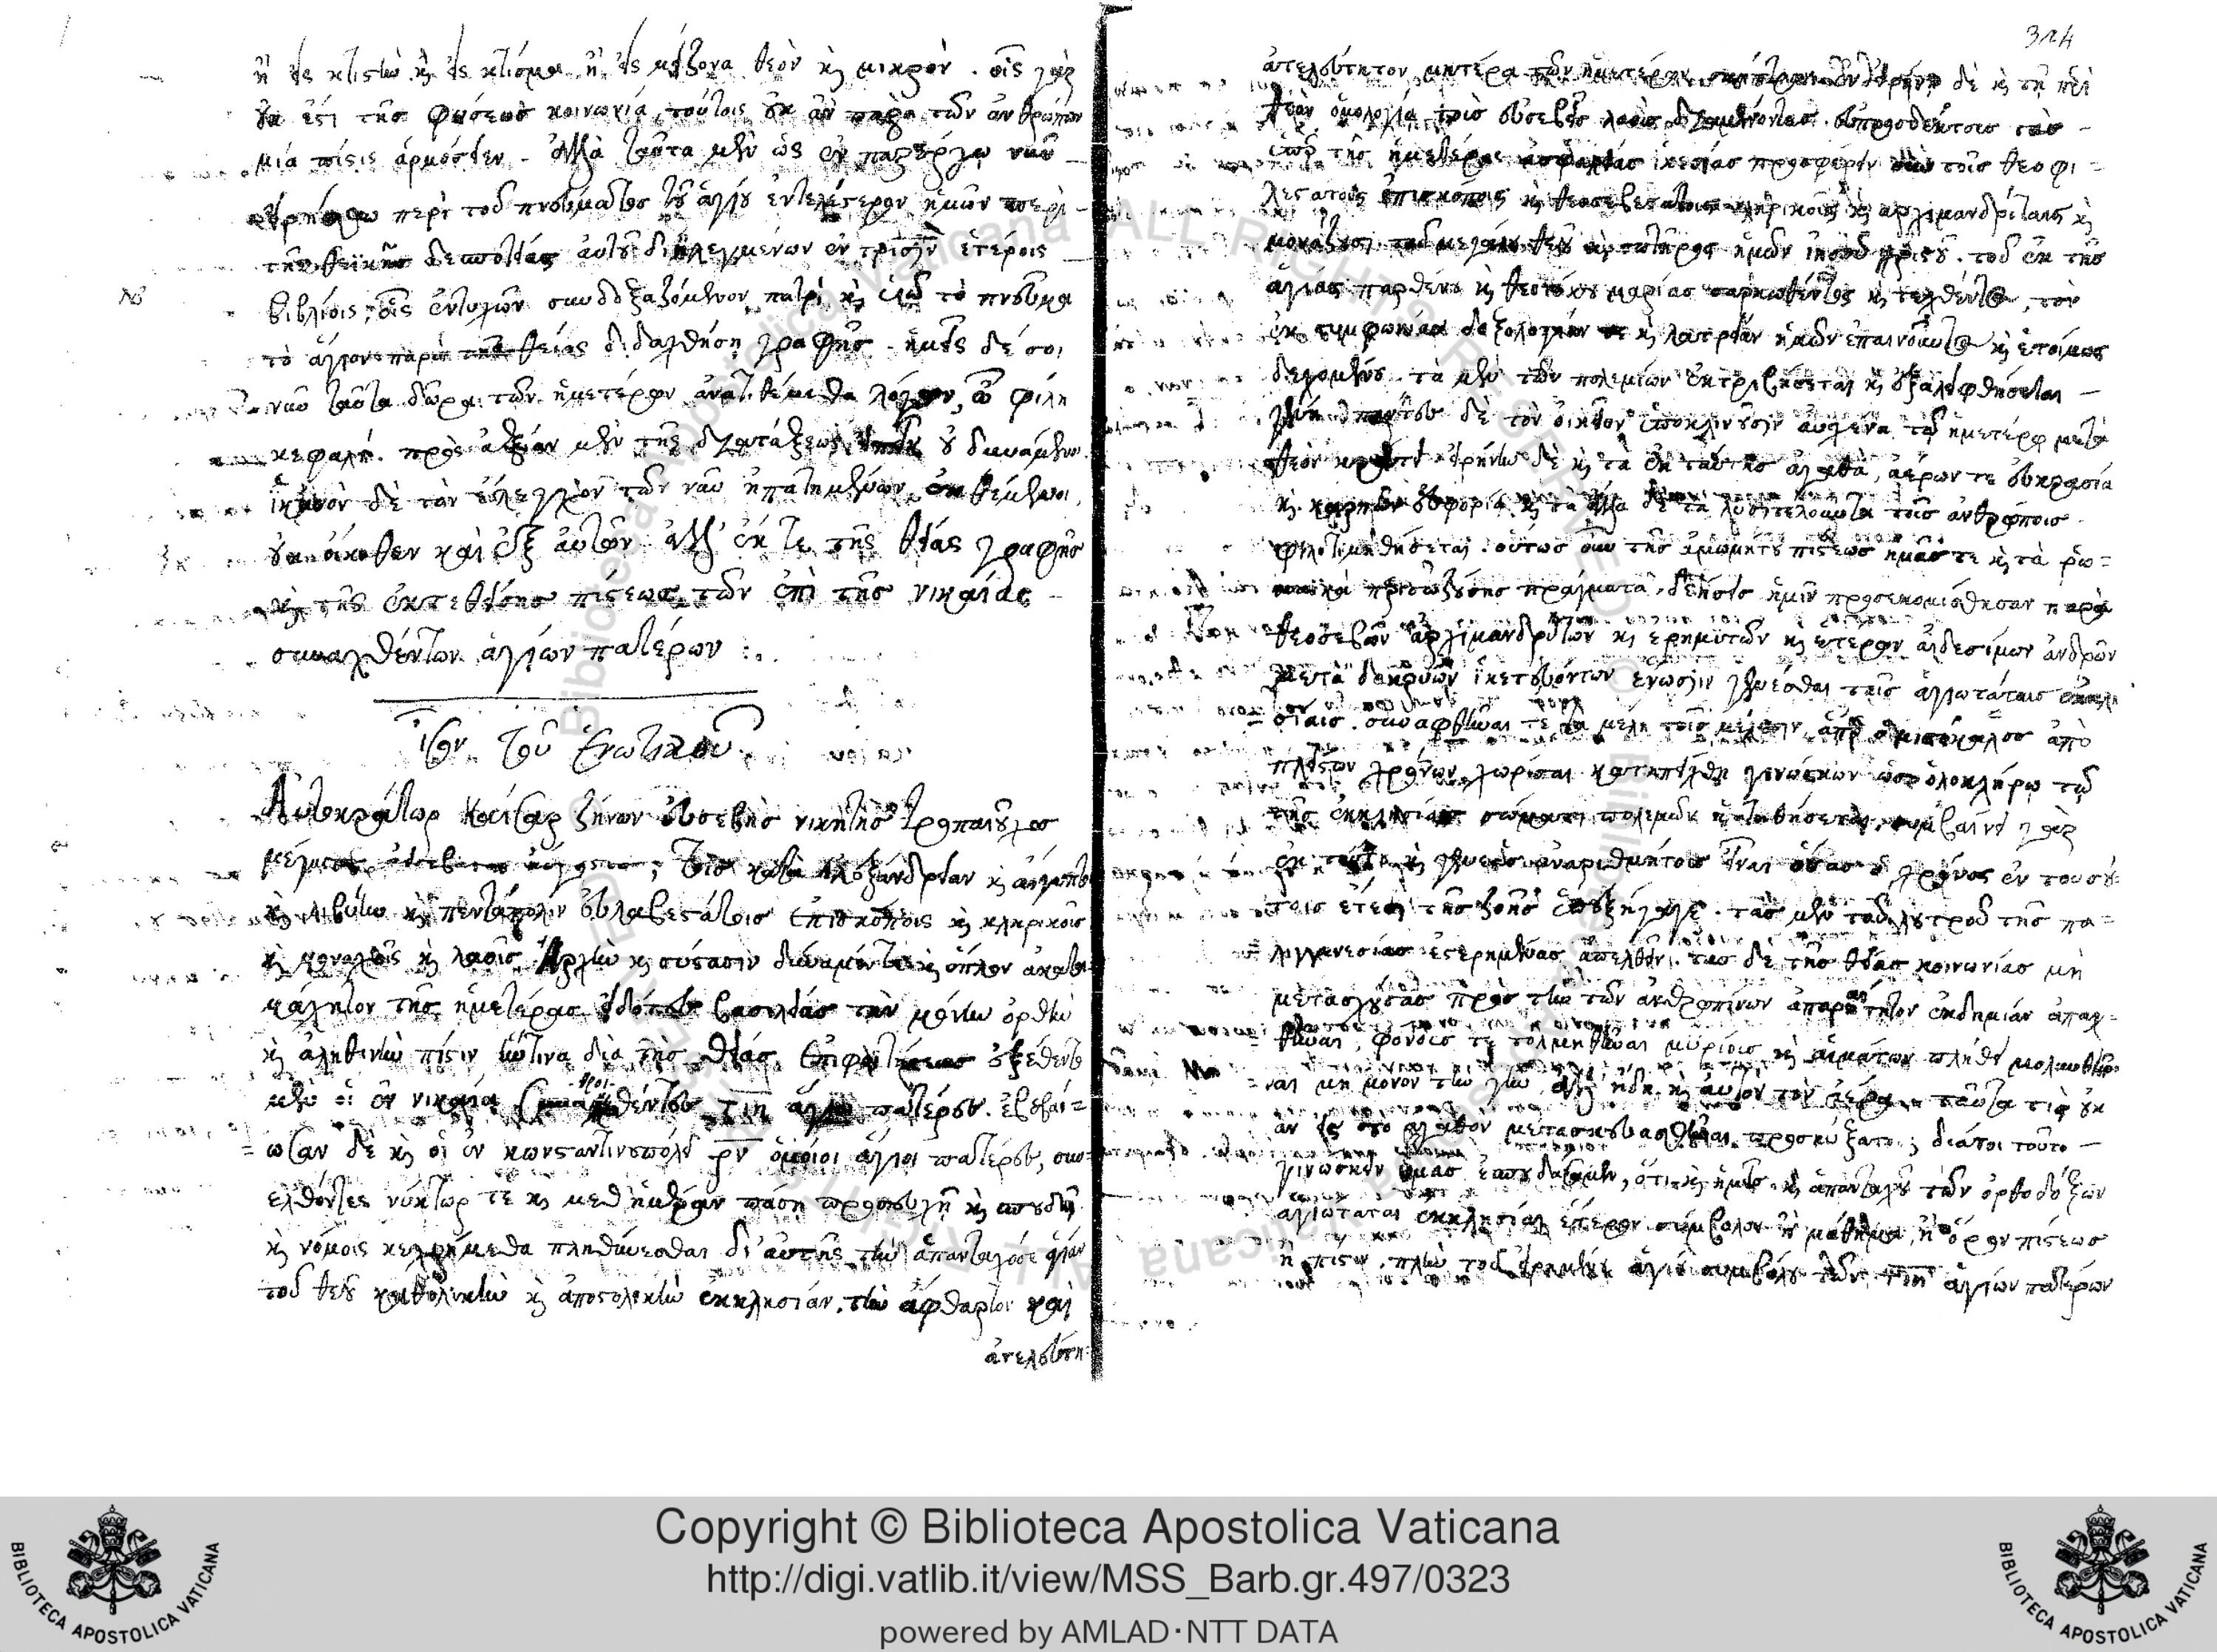 ἢ εἰς κτιστὸν κ̀ εἰς κτίσμα, ἢ εἰς μείζονα θεὸν κ̀ μικρόν. οἷς γὰρ
οὐκ ἔστι τῆς φύσεως κοινωνία, τούτοις οὐκ ἂν παρὰ τῶν ἀνθρώπων
μία πίστις ἁρμόσειεν. Ἀλλὰ ταῦτα μὲν ὡς ἐν παρέργῳ νῦν
περὶ τοῦ πνεύματος τοῦ ἁγίου ἐντελέστερον ἡμῶν περὶ
τῆς θεϊκῆς δεσποτείας αὐτοῦ διειλεγμένων ἐν τρισὶν ἑτέροις
βιβλίοις, οἷς ἐντυχὼν συνδοξαζόμενον πατρὶ κ̀ υἱῷ τὸ πνεῦμα
τὸ ἅγιον παρὰ τῆς θείας διδαχθήσῃ γραφῆς. ἡμεῖς δέ σοι
νῦν ταῦτα δῶρα τῶν ἡμετέρων ἀνατιθέμεθα λόγων, ὦ φίλη
κεφαλή. πρὸς ἀξίαν μὲν τῆς διατάξεως οὐ δυνάμενοι
ἱκανὸν δὲ τὸν ἔλεγχον τῶν νῦν ἠπατημένων ἐκθέμενοι,
οὐκ οἴκοθεν καὶ ἐξ αὐτῶν ἀλλ' ἔκ τε τῆς θείας γραφῆς
κ̀ τῆς ἐκτεθείσης πίστεως τῶν ἐπὶ τῆς νικαίας
συναχθέντων ἁγίων πατέρων :.
ἴσον τοῦ Ἑνωτικοῦ
Αὐτοκράτωρ Καίσαρ Ζήνων εὐσεβὴς νικητὴς τροπαιοῦχος
μέγιστος ἀεισέβαστος αὔγουστος, τοῖς κατὰ ἀλεξάνδρειαν κ̀ αἴγυπτον
κ̀ λιβύην κ̀ πεντάπολιν εὐλαβεστάτοις ἐπισκόποις κ̀ κληρικοῖς
κ̀ μοναχοῖς κ̀ λαοῖς. Ἀρχὴν κ̀ σύστασιν δύναμίν τε κ̀ ὅπλον ἀκατα
μάχητον τῆς ἡμετέρας εἰδότες βασιλείας τὴν μόνην ὀρθὴν
κ̀ ἀληθινὴν πίστιν ἥντινα διὰ τῆς θείας ἐπιφοιτήσεως ἐξέθεντο
μὲν οἱ ἐν νικαίᾳ συναθροισθέντες τιη ἅγιοι πατέρες. ἐβεβαί=
ωσαν δὲ κ̀ οἱ ἐν κωνσταντινουπόλει ρν ὁμοίοι ἅγιοι πατέρες, συν=
ελθόντες νύκτωρ τε κ̀ μεθ' ἡμέραν πάσῃ προσευχῇ κ̀ σπουδῇ
κ̀ νόμοις κεχρήμεθα πληθύνεσθαι δι' αὐτῆς τὴν ἁπανταχόσε ἁγίαν
τοῦ θεοῦ καθολικὴν κ̀ ἀποστολικὴν ἐκκλησίαν, τὴν ἄφθαρτον καὶ
ἀτελεύτη-
324
ἀτελεύτητον μητέρα τῶν ἡμετέρων σκήπτρων ἐν εἰρήνῃ δὲ κ̀ τῇ περὶ
θεὸν ὁμολογίᾳ τοὺς εὐσεβεῖς λαοὺς διαμένοντας. εὐπροσδέκτους τὰς
ὑπὲρ τῆς ἡμετέρας βασιλείας ἱκεσίας προσφέρειν σὺν τοῖς θεοφι=
λεστάτοις ἐπισκόποις κ̀ θεοσεβεστάτοις κληρικοῖς κ̀ ἀρχιμανδρίταις κ̀
μονάζουσι. τοῦ μεγάλου θεοῦ κ̀ σωτῆρος ἡμῶν ἰησοῦ χριστοῦ. τοῦ ἐκ τῆς
ἁγίας παρθένου κ̀ θεοτόκου μαρίας σαρκωθέντος κ̀ τεχθέντος, τὴν
ἐκ συμφωνίας δοξολογίαν κ̀ λατρείαν ἡμῶν ἐπαινοῦντος κ̀ ἑτοίμως
δεχομένου. τὰ μὲν τῶν πολεμίων ἐκτριβήσεται κ̀ ἐξαλειφθήσεται
γένη. πάντες δὲ τὸν οἰκεῖον ὑποκλινοῦσιν αὐχένα τῷ ἡμετέρῳ μετὰ
θεὸν κράτει εἰρήνη δὲ κ̀ τὰ ἐκ ταύτης ἀγαθά, ἀέρων τε εὐκρασία
κ̀ καρπῶν εὐφορία κ̀ τὰ ἄλλα δὲ τὰ λυσιτελοῦντα τοῖς ἀνθρώποις
φιλοτιμηθήσεται. οὕτως οὖν τῆς ἀμωμήτου πίστεως ἡμᾶς τε κ̀ τὰ ῥω=
μαϊκὰ περισωζούσης πράγματα, δεήσεις ἡμῖν προσεκομίσθησαν παρὰ
θεοσεβῶν ἀρχιμανδριτῶν κ̀ ἐρημιτῶν κ̀ ἑτέρων αἰδεσίμων ἀνδρῶν
μετὰ δακρύων ἱκετευόντων ἕνωσιν γενέσθαι ταῖς ἁγιωτάταις ἐκκλη
σίαις. συναφθῆναί τε τὰ μέλη τοῖς μέλεσιν, ἅπερ ὁ μισόκαλος ἀπὸ
πλείστων χρόνων χωρίσαι κατηπείχθη γινώσκων ὡς ὁλοκλήρῳ τῷ
τῆς ἐκκλησίας σώματι πολεμῶν ἡττηθήσεται. συμβαίνει γὰρ
ἐκ τούτου κ̀ γενεὰς ἀναριθμήτους εἶναι ὅσας ὁ χρόνος ἐν τοσού
τοις ἔτεσι τῆς ζωῆς ὑπεξήγαγε. τὰς μὲν τοῦ λουτροῦ τῆς πα=
λιγγενεσίας ἐστερημένας ἀπελθεῖν. τὰς δὲ τῆς θείας κοινωνίας μὴ
μετασχούσας πρὸς τὴν τῶν ἀνθρωπίνων ἀπαραίτητον ἐκδημίαν ἀπαχ=
θῆναι, φόνους τε τολμηθῆναι μυρίους κ̀ αἱμάτων πλήθει μολυνθῆ
ναι μὴ μόνον τὴν γῆν ἀλλ' ἤδη κ̀ αὐτὸν τὸν ἀέρα. ταῦτα τίς οὐκ
ἂν εἰς τὸ ἀγαθὸν μετασκευασθῆναι προσεύξαιτο; διάτοι τοῦτο
γινώσκειν ὑμᾶς ἐσπουδάσαμεν, ὅτι κ̀ ἡμεῖς κ̀ αἱ πανταχοῦ τῶν ὀρθοδόξων
ἁγιώταται ἐκκλησίαι ἕτερον σύμβολον ἢ μάθημα, ἢ ὅρον πίστεως
ἢ πίστιν, πλὴν τοῦ εἰρημένου ἁγίου συμβόλου τῶν τιη ἁγίων πατέρων
Copyright © Biblioteca Apostolica Vaticana
http://digi.vatlib.it/view/MSS_Barb.gr.497/0323
powered by AMLAD·NTT DATA
BIBLIOTECA APOSTOLICA VATICANA
BIBLIOTECA APOSTOLICA VATICANA